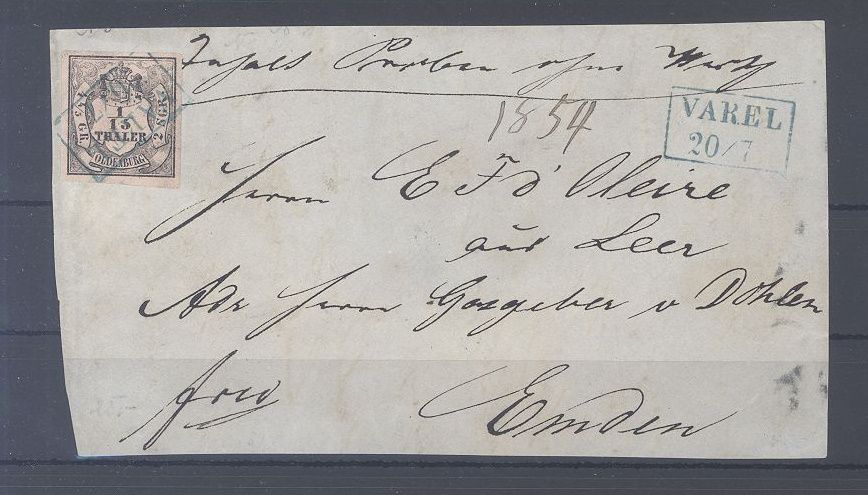 Inhalt Proben ohne Werth
1/15
THALER
OLDENBURG
2 SGR
VAREL
20/7
1854
Herrn E F d'Oleire
aus Leer
Adr Herrn Gasgeber v Döhlen
frco Emden